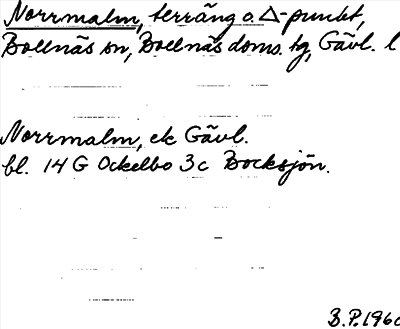 Norrmalm, terräng o. Δ-punkt,
Bollnäs sn, Bollnäs doms. tg, Gävl. l
Norrmalm, ek Gävl.
bl. 14 G Ockelbo 3c Bocksjön.
B.P. 1960